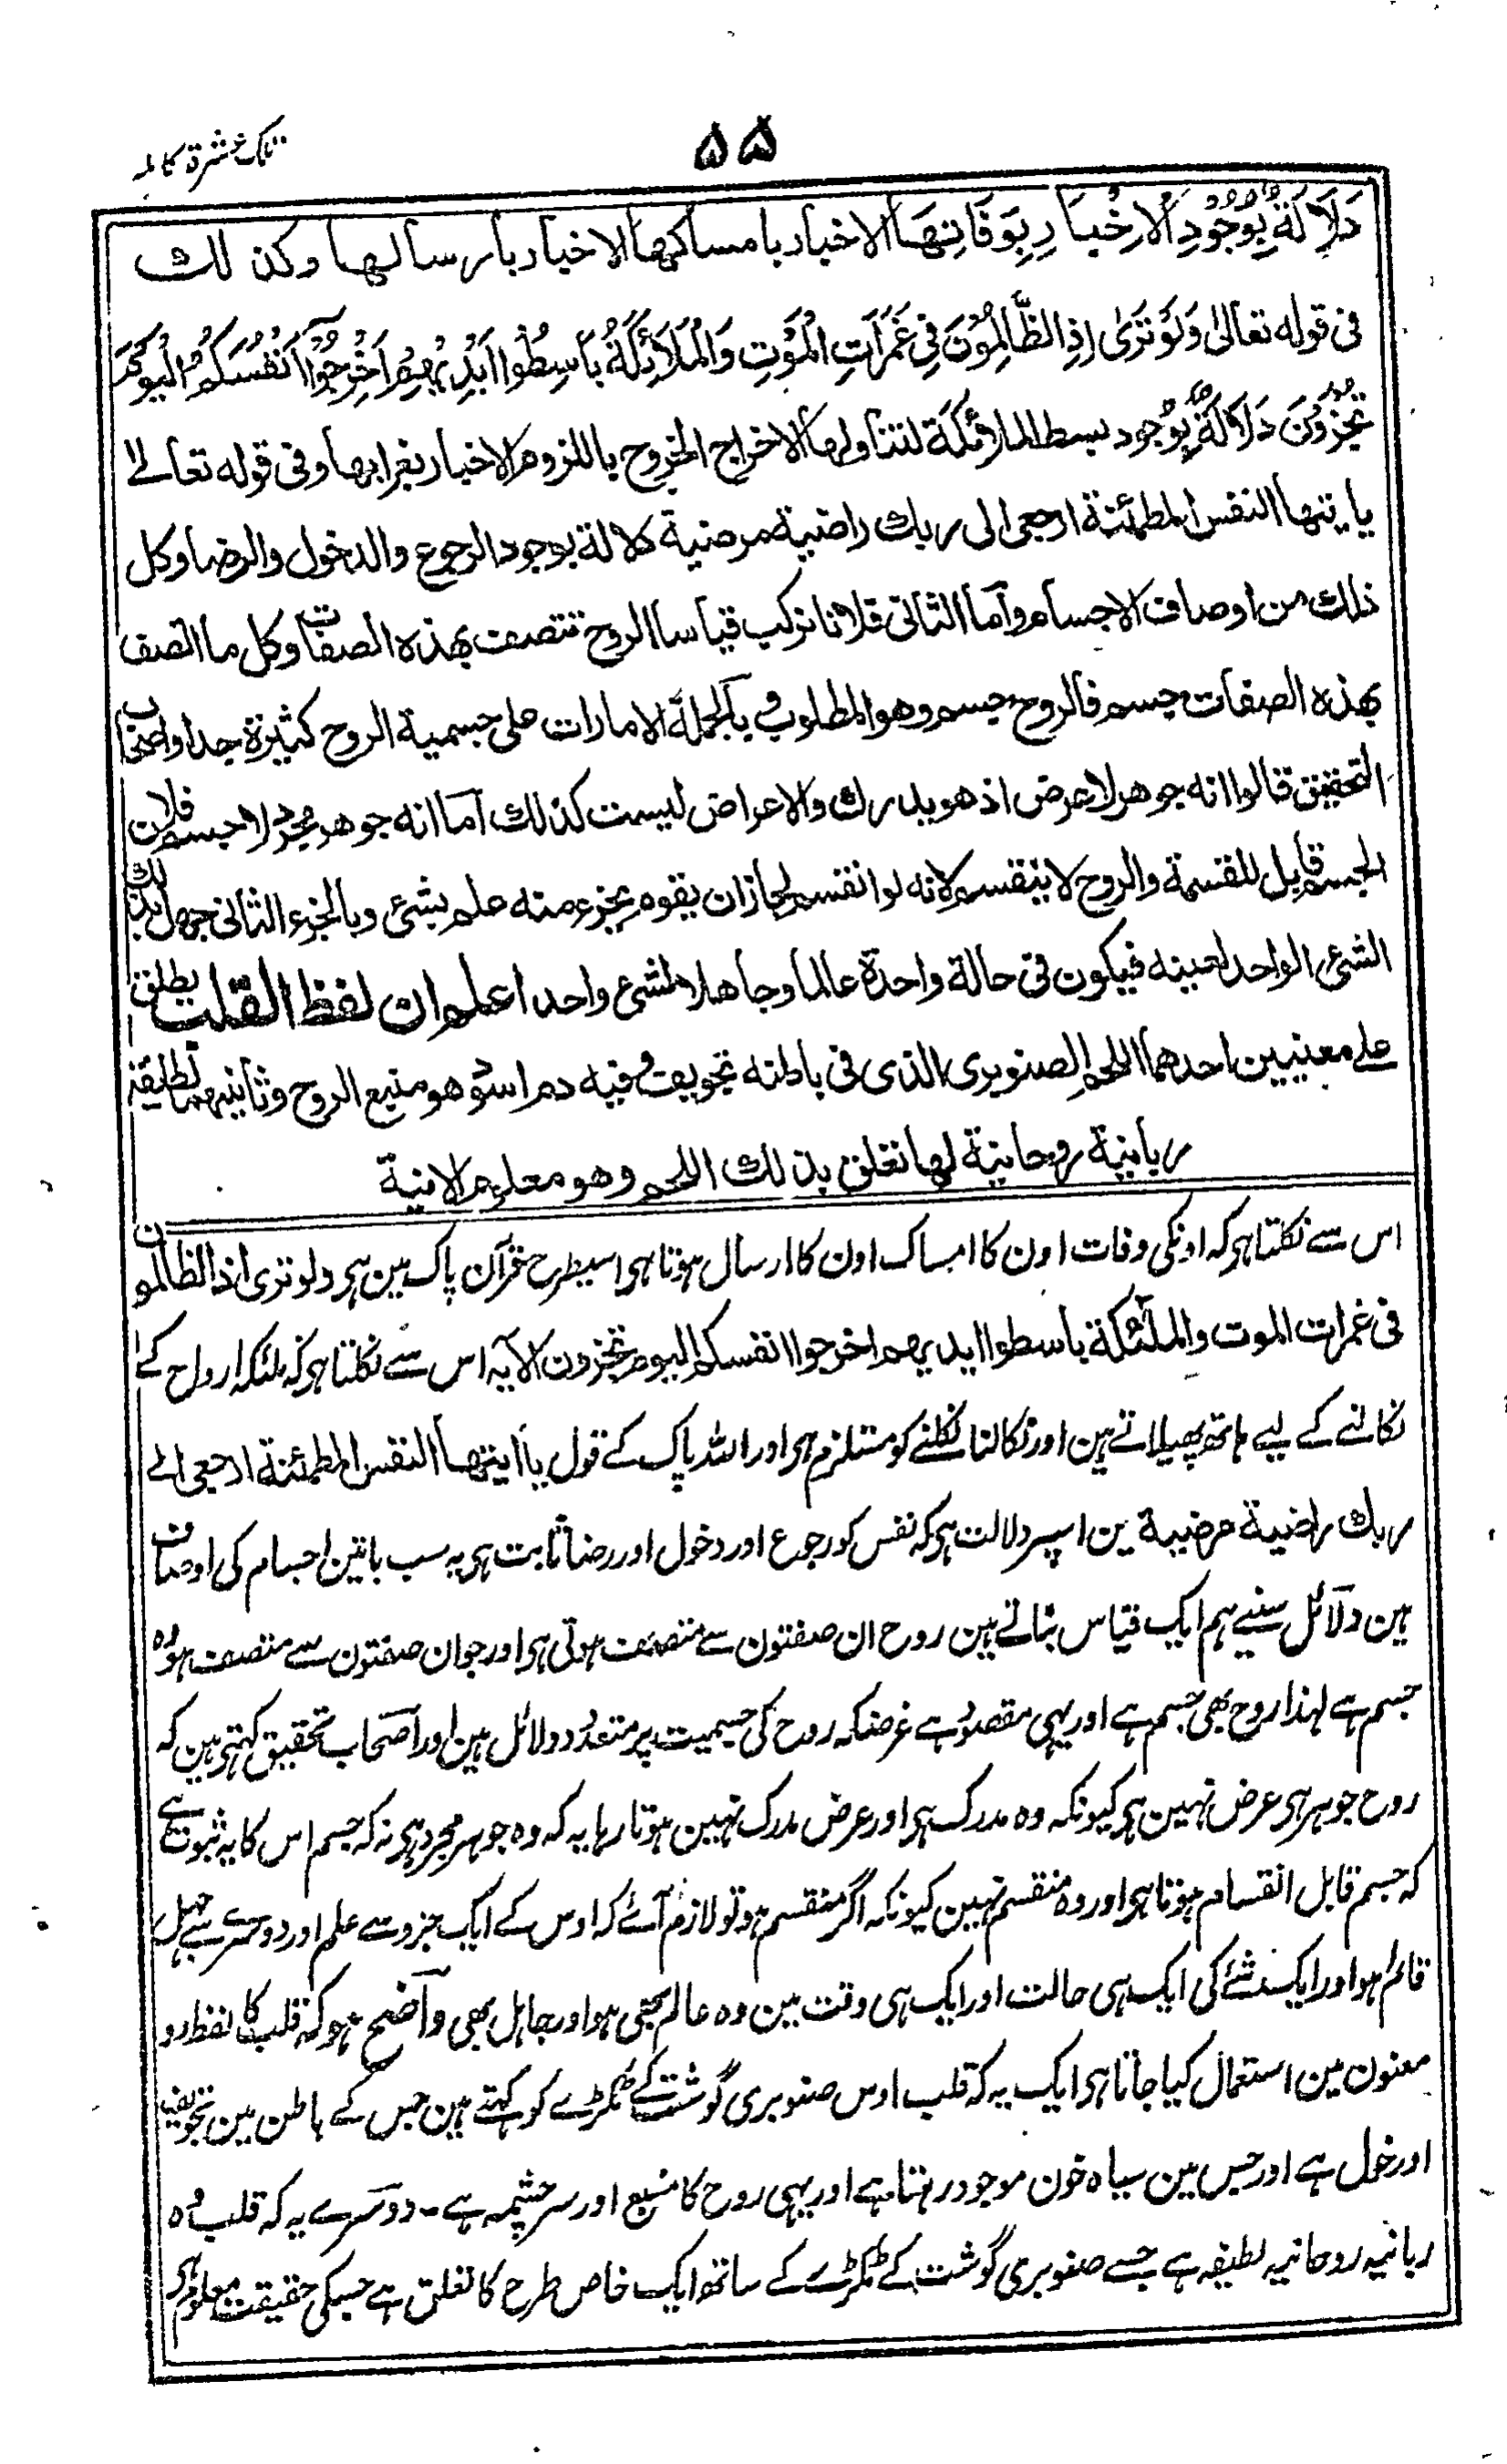 تلک عشرة کاملہ
۵۵
دَلَالَةٌ بِوُجُوْدِ الْاِخْبَارِ بِوَفَاتِهَا الاخبار بامساكها الاخبار بارسالها وكذلك
فى قوله تعالىٰ وَلَوْ تَرٰى اِذِ الظَّالِمُوْنَ فِي غَمَرَاتِ الْمَوْتِ وَالْمَلَائِكَةُ بَاسِطُوْا اَيْدِيْهِمْ اَخْرِجُوْا اَنْفُسَكُمُ الْيَوْمَ
تُجْزَوْنَ دَلَالَةٌ بِوُجود بسط الملائكة لتناولها الاخراج الخروج باللزوم الاخبار بعذابها وفى قوله تعالى
يايتها النفس المطمئنة ارجعى الى ربك راضية مرضية دلالة بوجود الرجوع والدخول والرضا وكل
ذلك من اوصاف الاجسام وآما الثانى فلانا نركب قياسا الروح تتصف بهذه الصفات وكل ما اتصف
بهذه الصفات جسم فالروح جسم وهو المطلوب و بالجملة الامارات على جسمية الروح كثيرة جدا واصحاب
التحقيق قالوا انه جوهر لا عرض اذ هو يدرك والاعراض ليست كذلك آما انه جوهر مجرد لا جسم فلان
الجسم قابل للقسمة والروح لا ينقسم لانه لو انقسم لجاز ان يقوم بجزء منه علم بشئ وبالجزء الثانى جهل بذلك
الشئ الواحد لعينه فيكون فى حالة واحدة عالما وجاهلا لشئ واحد اعلم ان لفظ القلب يطلق
على معنيين احدهما اللحم الصنوبرى الذى فى باطنه تجويف و فيه دم اسود هو منبع الروح وثانيهما لطيفة
ربانية روحانية لها تعلق بذلك اللحم وهو معلوم الانية
اس سے نکلتا ہی کہ اونکی وفات اون کا امساک اون کا ارسال ہوتا ہی اسیطرح قرآن پاک مین ہی ولو ترى اذ الظالمون
فى غمرات الموت والملئكة باسطوا ايديهم اخرجوا انفسكم اليوم تجزون الآیہ اس سے نکلتا ہی کہ ملئکہ ارواح کے
نکالنے کے لیے ہاتھ پھیلاتے ہین اور نکالنا نکلنے کو مستلزم ہی اور اللہ پاک کے قول يا ايتها النفس المطمئنة ارجعى الى
ربك راضية مرضية مین اسپر دلالت ہی کہ نفس کو رجوع اور دخول اور رضا ثابت ہی یہ سب باتین اجسام کی اوصاف
ہین دلائل سنیے ہم ایک قیاس بناتے ہین روح ان صفتون سے متصف ہوتی ہی اور جو ان صفتون سے متصف ہو وہ
جسم ہے لہذا روح بھی جسم ہے اور یہی مقصود ہے غرضکہ روح کی جسمیت پر متعدد دلائل ہین اور اصحاب تحقیق کہتی ہین کہ
روح جوہر ہی عرض نہین ہی کیونکہ وہ مدرک ہی اور عرض مدرک نہین ہوتا رہا یہ کہ وہ جوہر مجرد ہی نہ کہ جسم اس کا یہ ثبوت ہے
کہ جسم قابل انقسام ہوتا ہی اور وہ منقسم نہین کیونکہ اگر منقسم ہو تو لازم آئے کہ اوس کے ایک جزو سے علم اور دوسرے سے جہل
قائم ہو اور ایک شئے کی ایک ہی حالت اور ایک ہی وقت مین وہ عالم بھی ہو اور جاہل بھی واضح ہو کہ قلب کا لفظ دو
معنون مین استعمال کیا جاتا ہی ایک یہ کہ قلب اوس صنوبری گوشت کے ٹکڑے کو کہتے ہین جس کے باطن مین تجویف
اور خول ہے اور جس مین سیاہ خون موجود رہتا ہے اور یہی روح کا منبع اور سرچشمہ ہے۔ دوسرے یہ کہ قلب وہ
ربانیہ روحانیہ لطیفہ ہے جسے صنوبری گوشت کے ٹکڑے کے ساتھ ایک خاص طرح کا تعلق ہے جسکی حقیقت معلوم ہی